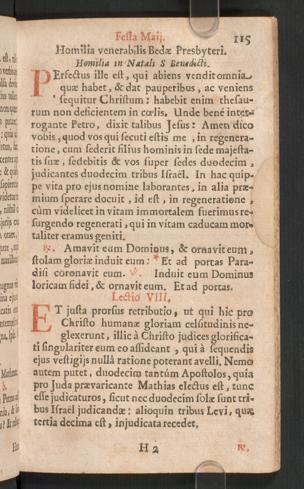 Festa Maij. 115
Homilia venerabilis Bedæ Presbyteri.
Homilia in Natali S Benedicti.
PErfectus ille est, qui abiens vendit omnia
quæ habet, & dat pauperibus, ac veniens
sequitur Christum: habebit enim thesau-
rum non deficientem in cœlis. Unde bene inter-
rogante Petro, dixit talibus Jesus: Amen dico
vobis, quod vos qui secuti estis me, in regenera-
tione, cum sederit filius hominis in sede majesta-
tis suæ, sedebitis & vos super sedes duodecim,
judicantes duodecim tribus Israël. In hac quip-
pe vita pro ejus nomine laborantes, in alia præ-
mium sperare docuit, id est, in regeneratione,
cùm videlicet in vitam immortalem fuerimus re-
surgendo regenerati, qui in vitam caducam mor-
taliter eramus geniti.
℟. Amavit eum Dominus, & ornavit eum,
stolam gloriæ induit eum: * Et ad portas Para-
disi coronavit eum. ℣. Induit eum Dominus
loricam fidei, & ornavit eum. Et ad portas.
Lectio VIII.
ET justa prorsus retributio, ut qui hic pro
Christo humanæ gloriam celsitudinis ne-
glexerunt, illic à Christo judices glorifica-
ti singulariter eum eo assideant, qui à sequendis
ejus vestigiis nullâ ratione poterant avelli. Nemo
autem putet, duodecim tantúm Apostolos, quia
pro Juda prævaricante Mathias electus est, tunc
esse judicaturos, sicut nec duodecim solæ sunt tri-
bus Israël judicandæ: alioquin tribus Levi, quæ
tertia decima est, injudicata recedet.
H 2 ℟.